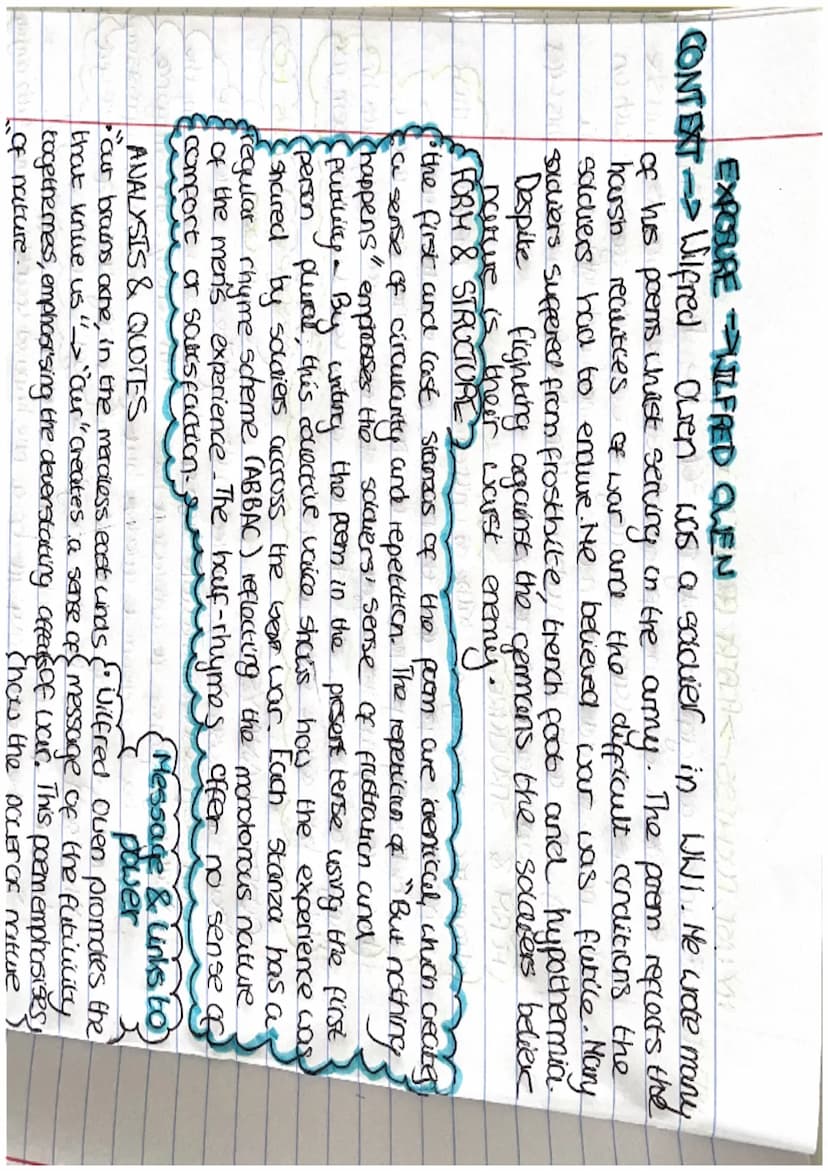 EXPOSURE → WILFRED OWEN
CONTEXT → Wilfred Owen was a soldier in WW1. He wrote many
of his poems whilst serving in the army. The poem reflects the
harsh realities of war are the difficult conditions the
soldiers had to endure. He believed war was futile. Many
soldiers suffered from frostbite, trench foot and hypothermia.
Despite fighting against the germans the soldiers believe
nature is their worst enemy.
FORM & STRUCTURE
• the first and last stanzas of the poem are identical, which creates
a sense of circularity and repetition. The repetition of "But nothing
happens" emphasises the soldiers' sense of frustration and
futility. By writing the poem in the present tense using the first
person plural, this collective voice shows how the experience was
shared by soldiers across the war. Each stanza has a
regular rhyme scheme (ABBAC) reflecting the monotonous nature
of the men's experience. The half-rhymes offer no sense of
comfort or satisfaction.
ANALYSIS & QUOTES
• "Our brains ache, in the merciless east winds
that knive us" → "Our" creates a sense of
togetherness, emphasising the deverstating affects of war.
of nature.
Message & links to
power
• Wilfred Owen promotes the
message of the futility
of war. This poem emphasises
how the power of nature